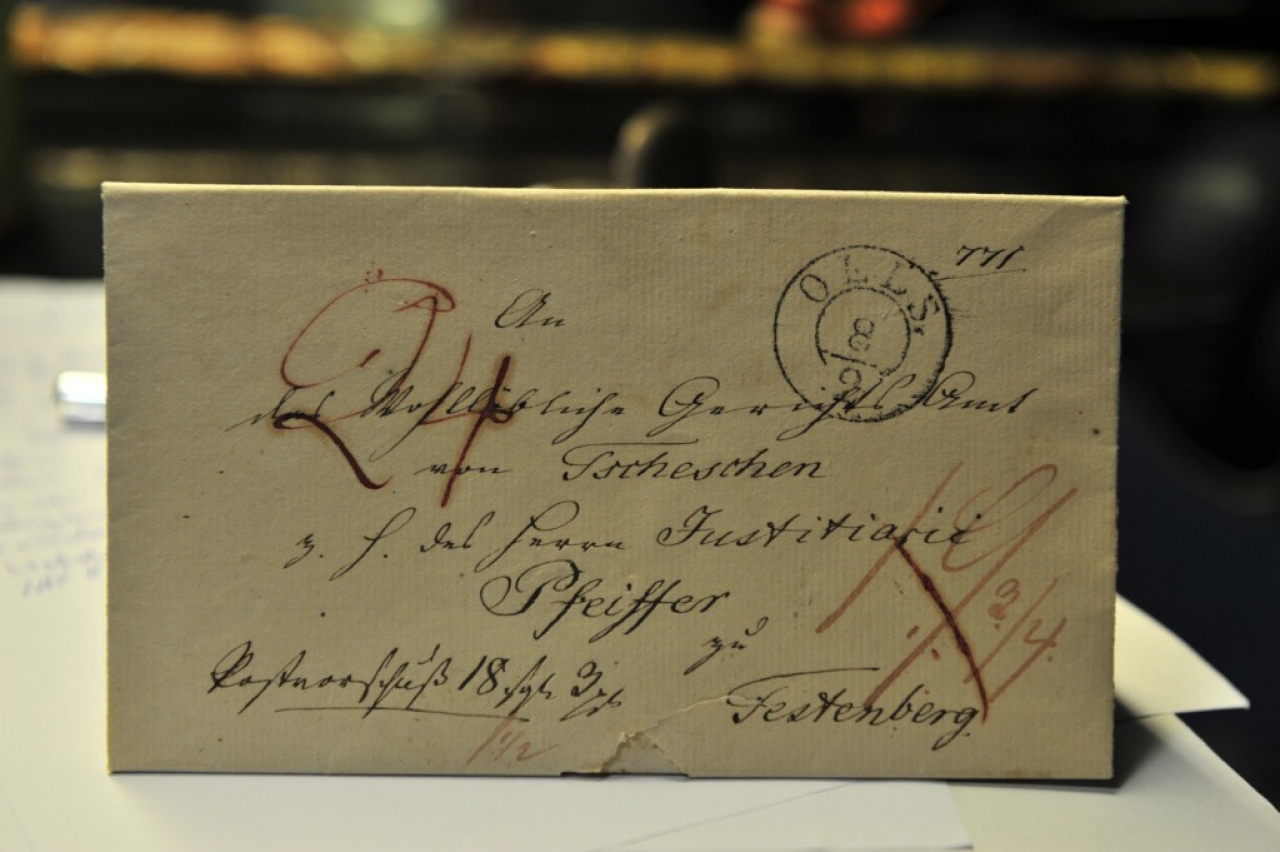 771
OELS.
8
An
das Wohllöbliche Gerichts Amt
von Tscheschen
z. H. des Herrn Justitiarii
Pfeiffer
zu
Postvorschuß 18 sgl. 3 pf
Festenberg
24
3/4
1 1/2